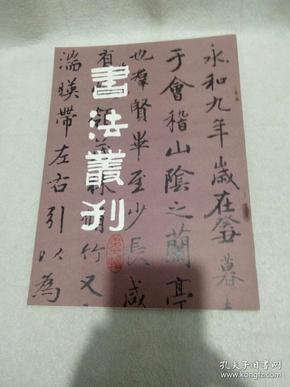 永和九年歲在癸丑暮
于會稽山陰之蘭亭
也羣賢畢至少長咸
有領茂林脩竹又
湍暎帶左右引以為
書法叢刊
孔夫子旧书网